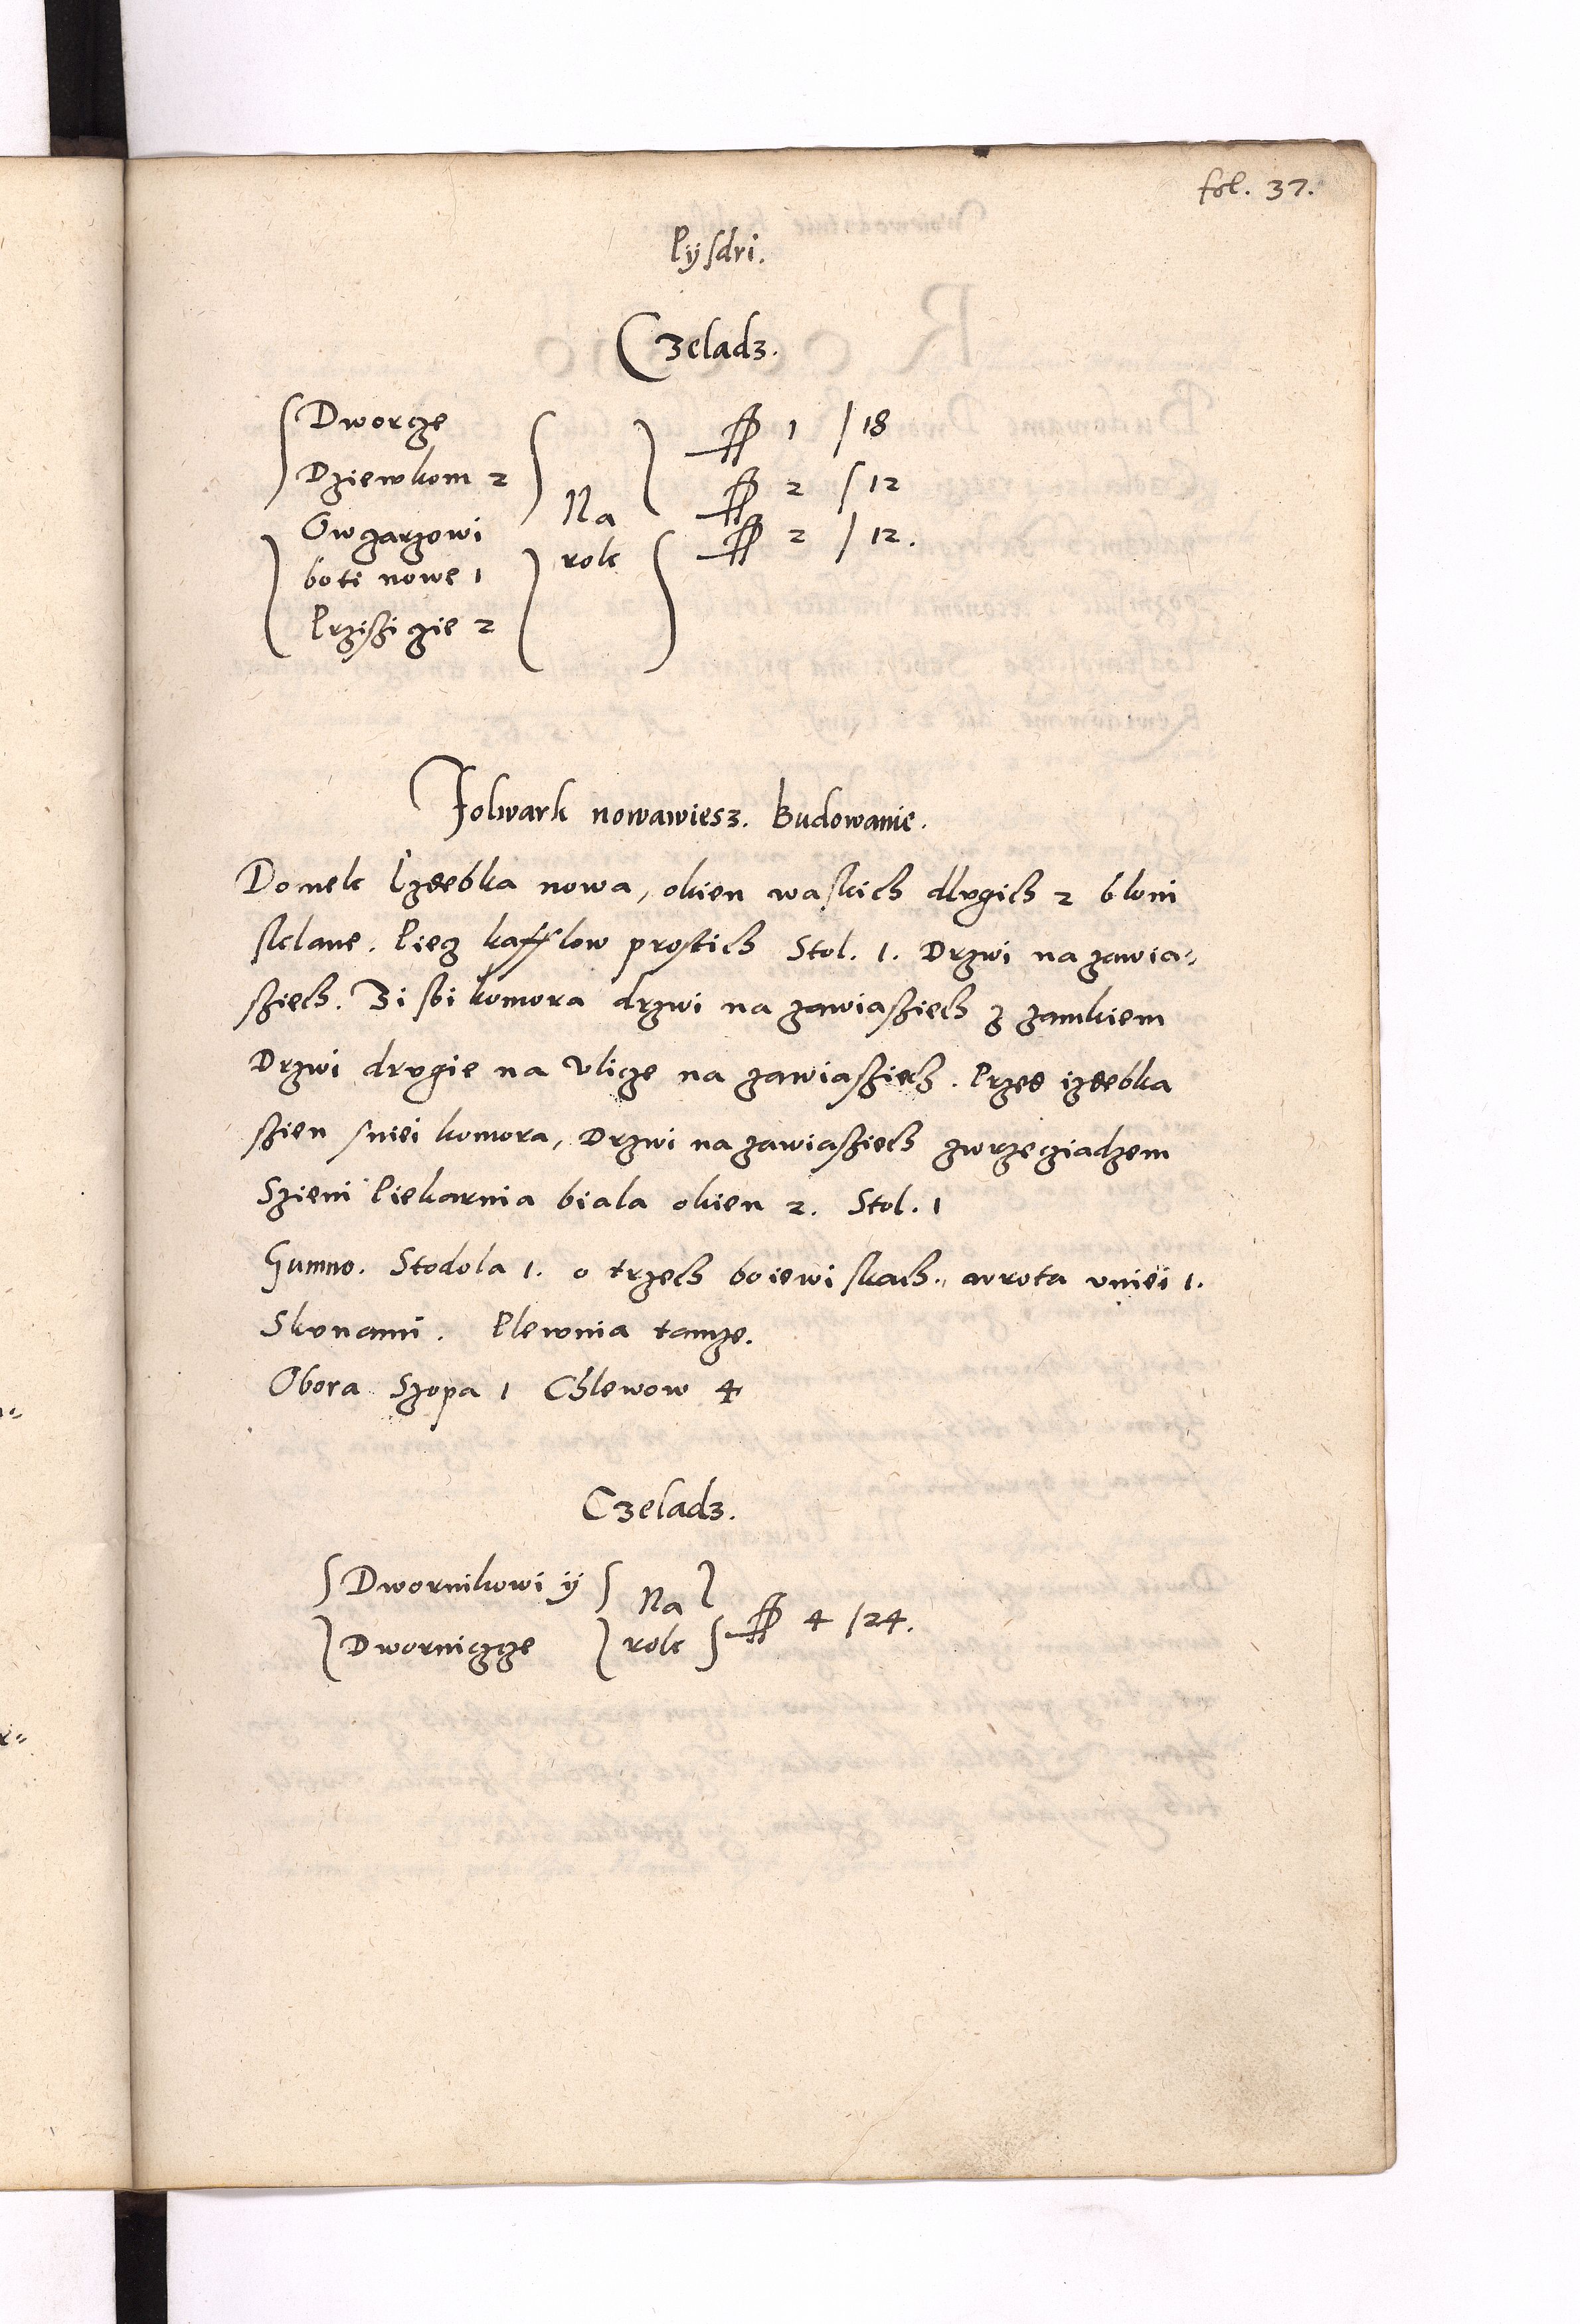 fol. 37.
Pysdri.
Czeladz.
Dworcze Na rok ff 1 / 18
Dziewkom 2 ff 2 / 12
Owczarzowi ff 2 / 12.
boti nowe 1
Prziszicie 2
Folwark nowawiesz. Budowanie.
Domek Izdebka nowa, okien waskich dlugich 2 bloni
sklane. Piecz kafflow prostich Stol. 1. Drzwi na zawia-
sziech. Zisbi komora drzwi na zawiasziech z zamkiem
Drzwi drugie na Vlicze na zawiasziech. Przed izdebka
szien sniei komora, Drzwi na zawiasziech zwrzecziadzem
Szieni Piekarnia biala okien 2. Stol. 1
Gumno. Stodola 1. o trzech boiewiskach. wrota vniei 1.
Skunami. Plewnia tamze.
Obora Szopa 1 Chlewow 4
Czeladz.
Dwornikowi ij Na rok ff 4 / 24.
Dworniczcze